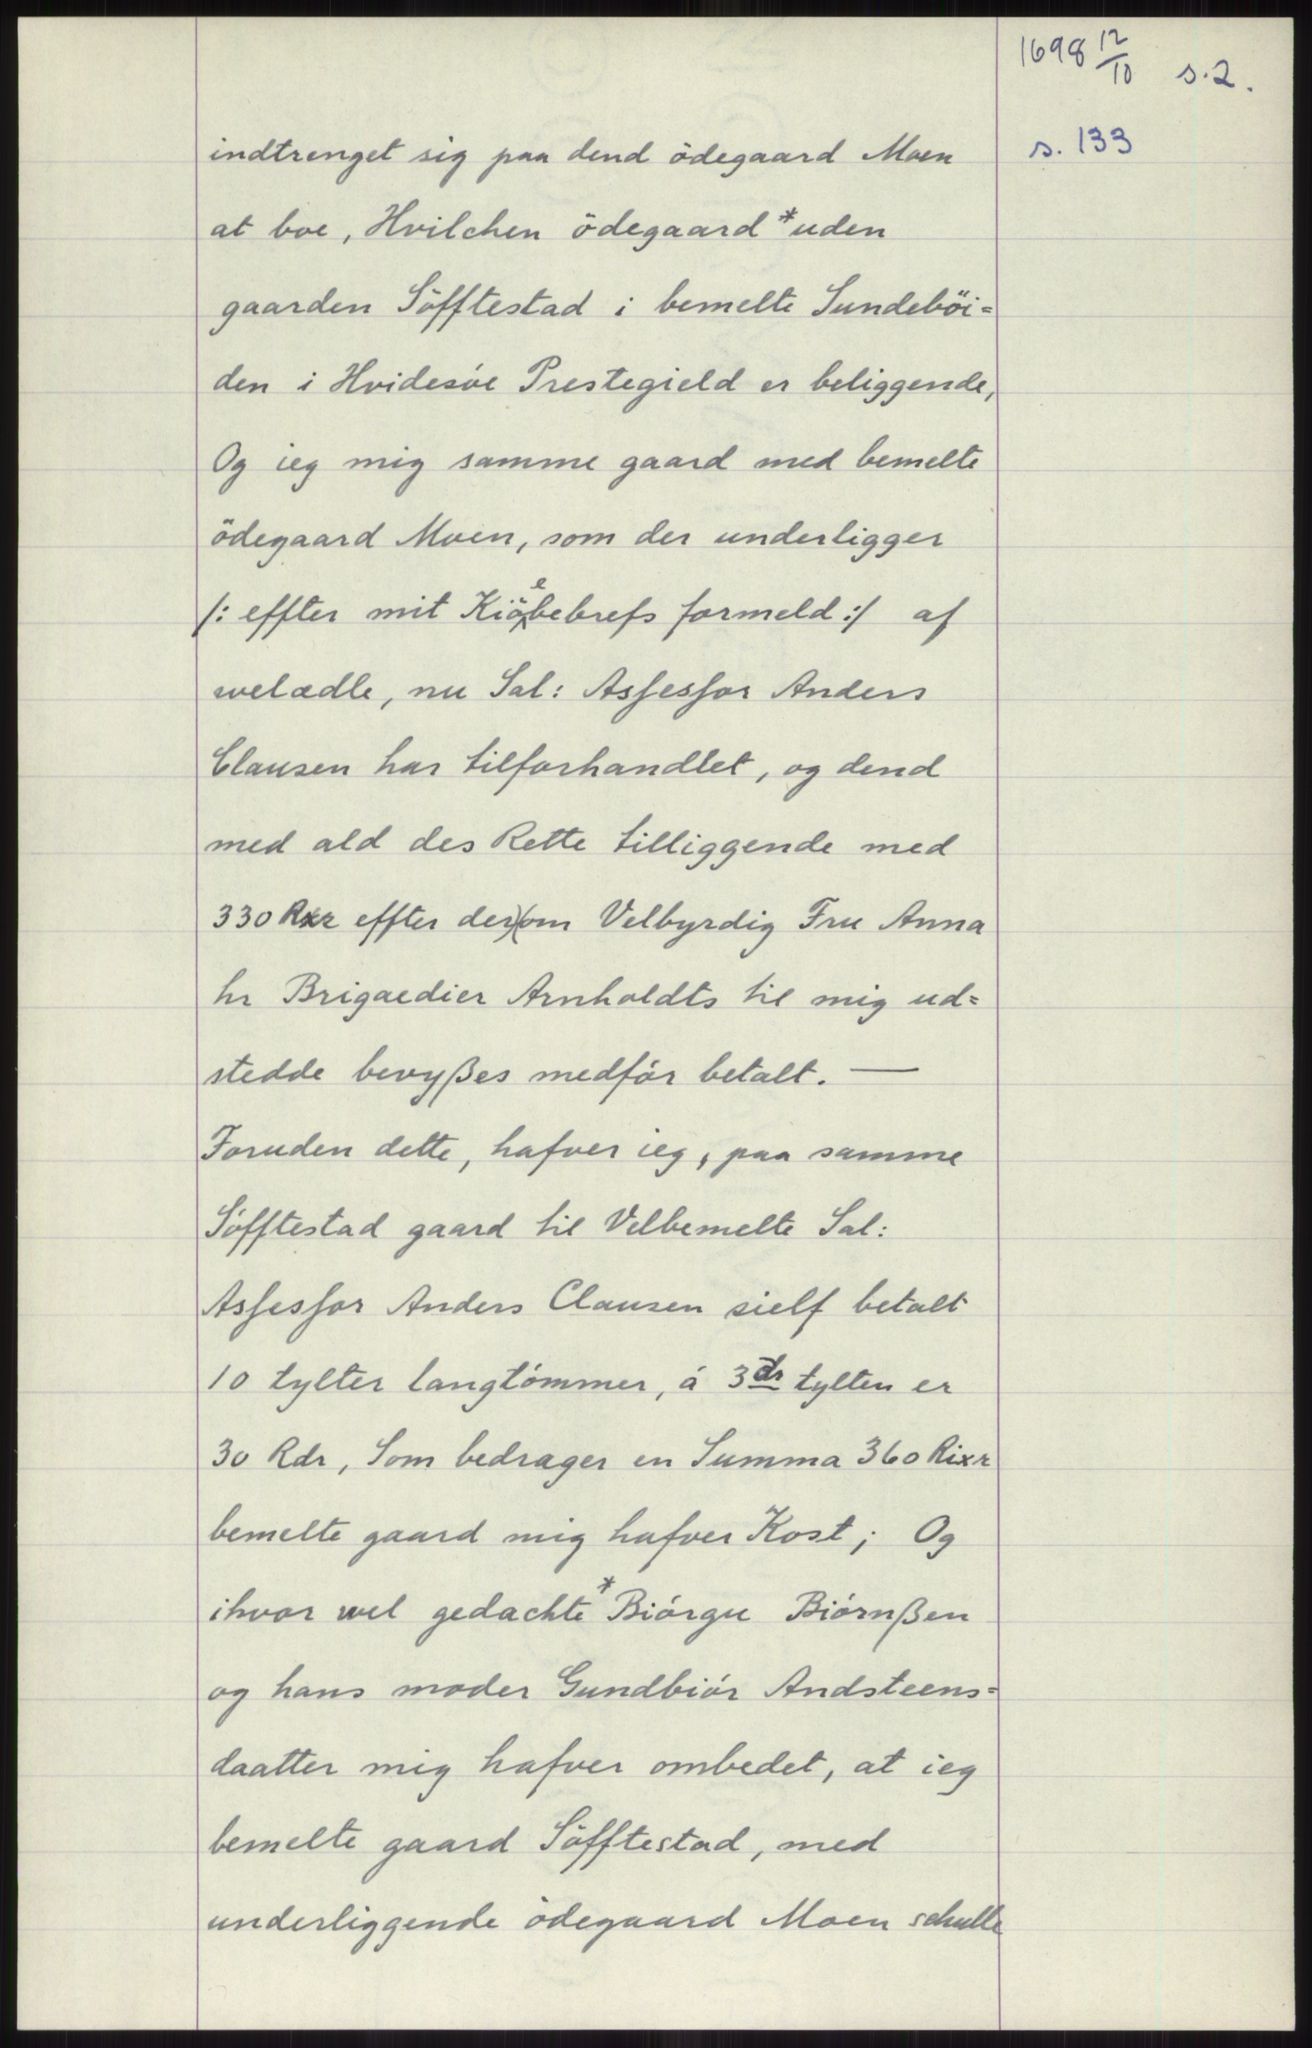 1698 12/10 s.2.
s. 133
indtrenget sig paa dend ödegaard Moen
at boe, Hvilchen ödegaard * uden
gaarden Söfftestad i bemelte Sundeböi=
den i Hvidesöe Prestegield er beliggende,
Og ieg mig samme gaard med bemelte
ödegaard Moen, som der underligger
/: effter mit Kiöebebrefs formeld :/ af
welædle, nu Sal: Asſesſor Anders
Clausen har tilforhandlet, og dend
med ald des Rette tilliggende med
330 Rxr effter der)(om Velbyrdig Fru Anna
hr Brigaedier Arnholdts til mig ud=
stedde bevyßes medför betalt. —
Foruden dette, hafver ieg, paa samme
Söfftestad gaard til Velbemelte Sal:
Asſesſor Anders Clausen sielf betalt
10 tylter langtömmer, á 3 dr tylten er
30 Rdr, Som bedrager en Summa 360 Rixr
bemelte gaard mig hafver Kost; Og
ihvor wel gedachte * Biörgu Biörnßen
og hans moder Gundbiör Andsteens=
daatter mig hafver ombedet, at ieg
bemelte gaard Söfftestad, med
underliggende ödegaard Moen schulle